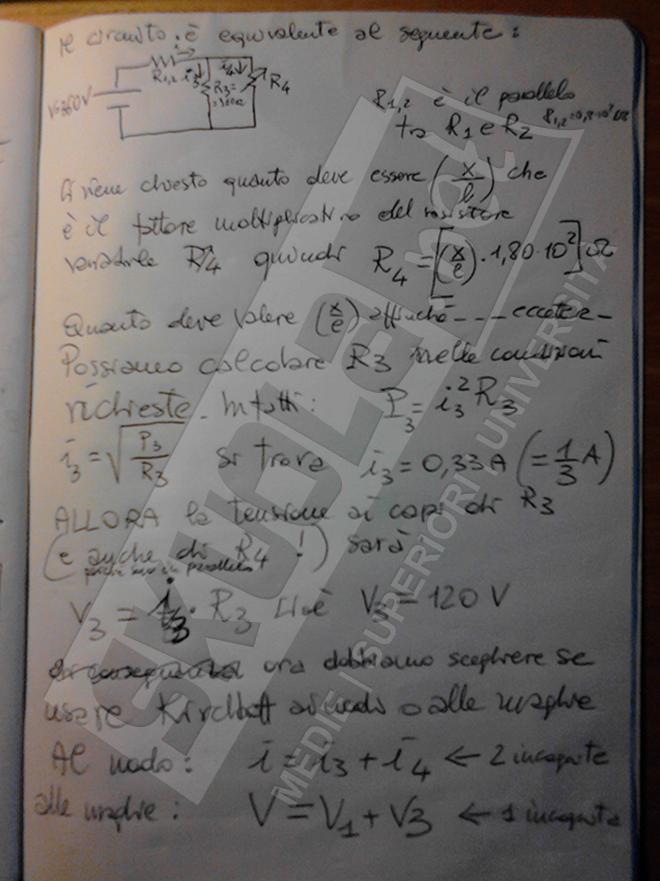 Il circuito è equivalente al seguente:
i →
R1,2 i3 i4
V=360V R3= =360Ω R4
R1,2 è il parallelo
tra R1 e R2 R1,2=0,8·10²Ω
Ci viene chiesto quanto deve essere (x/l) che
è il fattore moltiplicativo del resistore
variabile R4 quindi R4 = [(x/l)·1,80·10²]Ω
Quanto deve valere (x/l) affinché --- eccetera-
Possiamo calcolare R3 nelle condizioni
richieste. Infatti: P3 = i3² R3
i3 = √(P3/R3) si trova i3 = 0,33A (=1/3 A)
ALLORA la tensione ai capi di R3
(e anche di R4!) sarà
perché sono in parallelo
V3 = i3 · R3 cioè V3 = 120 V
ora dobbiamo scegliere se
usare Kirchhoff ai nodi o alle maglie
Al nodo: i = i3 + i4 ← 2 incognite
alle maglie: V = V1 + V3 ← 1 incognita
SKUOLA.NET
MEDIE | SUPERIORI | UNIVERSITÀ